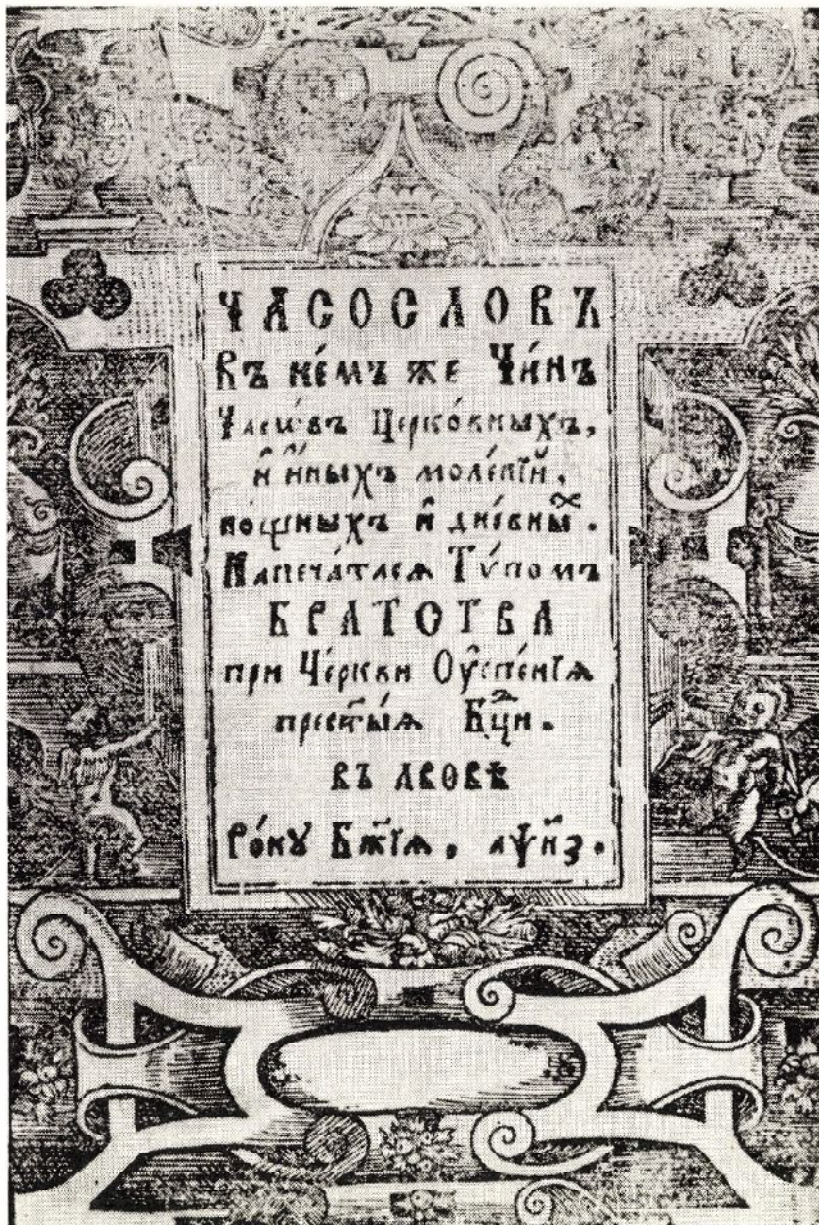 ЧАСОСЛОВЪ
Въ не́мъ же Чи́нъ
Часѡ́въ Церко́вныхъ,
и҆ и҆́ныхъ моле́нїй,
но́щныхъ и҆ дне́вныⷯ.
Напеча́тасѧ Тѵ́помъ
БРАТОТВА
при Це́ркви Оу҆спе́нїѧ
прест҃ы́ѧ Бц҃ди.
въ ЛВОВѢ
Ро́кꙋ Бж҃їѧ, аѱ҃нз.